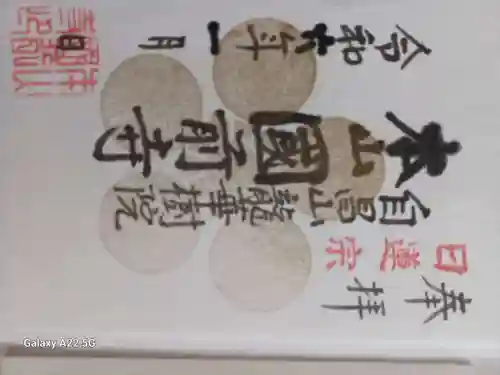 奉拝
日蓮宗
自昌山龍華樹院
本山國前寺
令和六年一月 日
Galaxy A22 5G